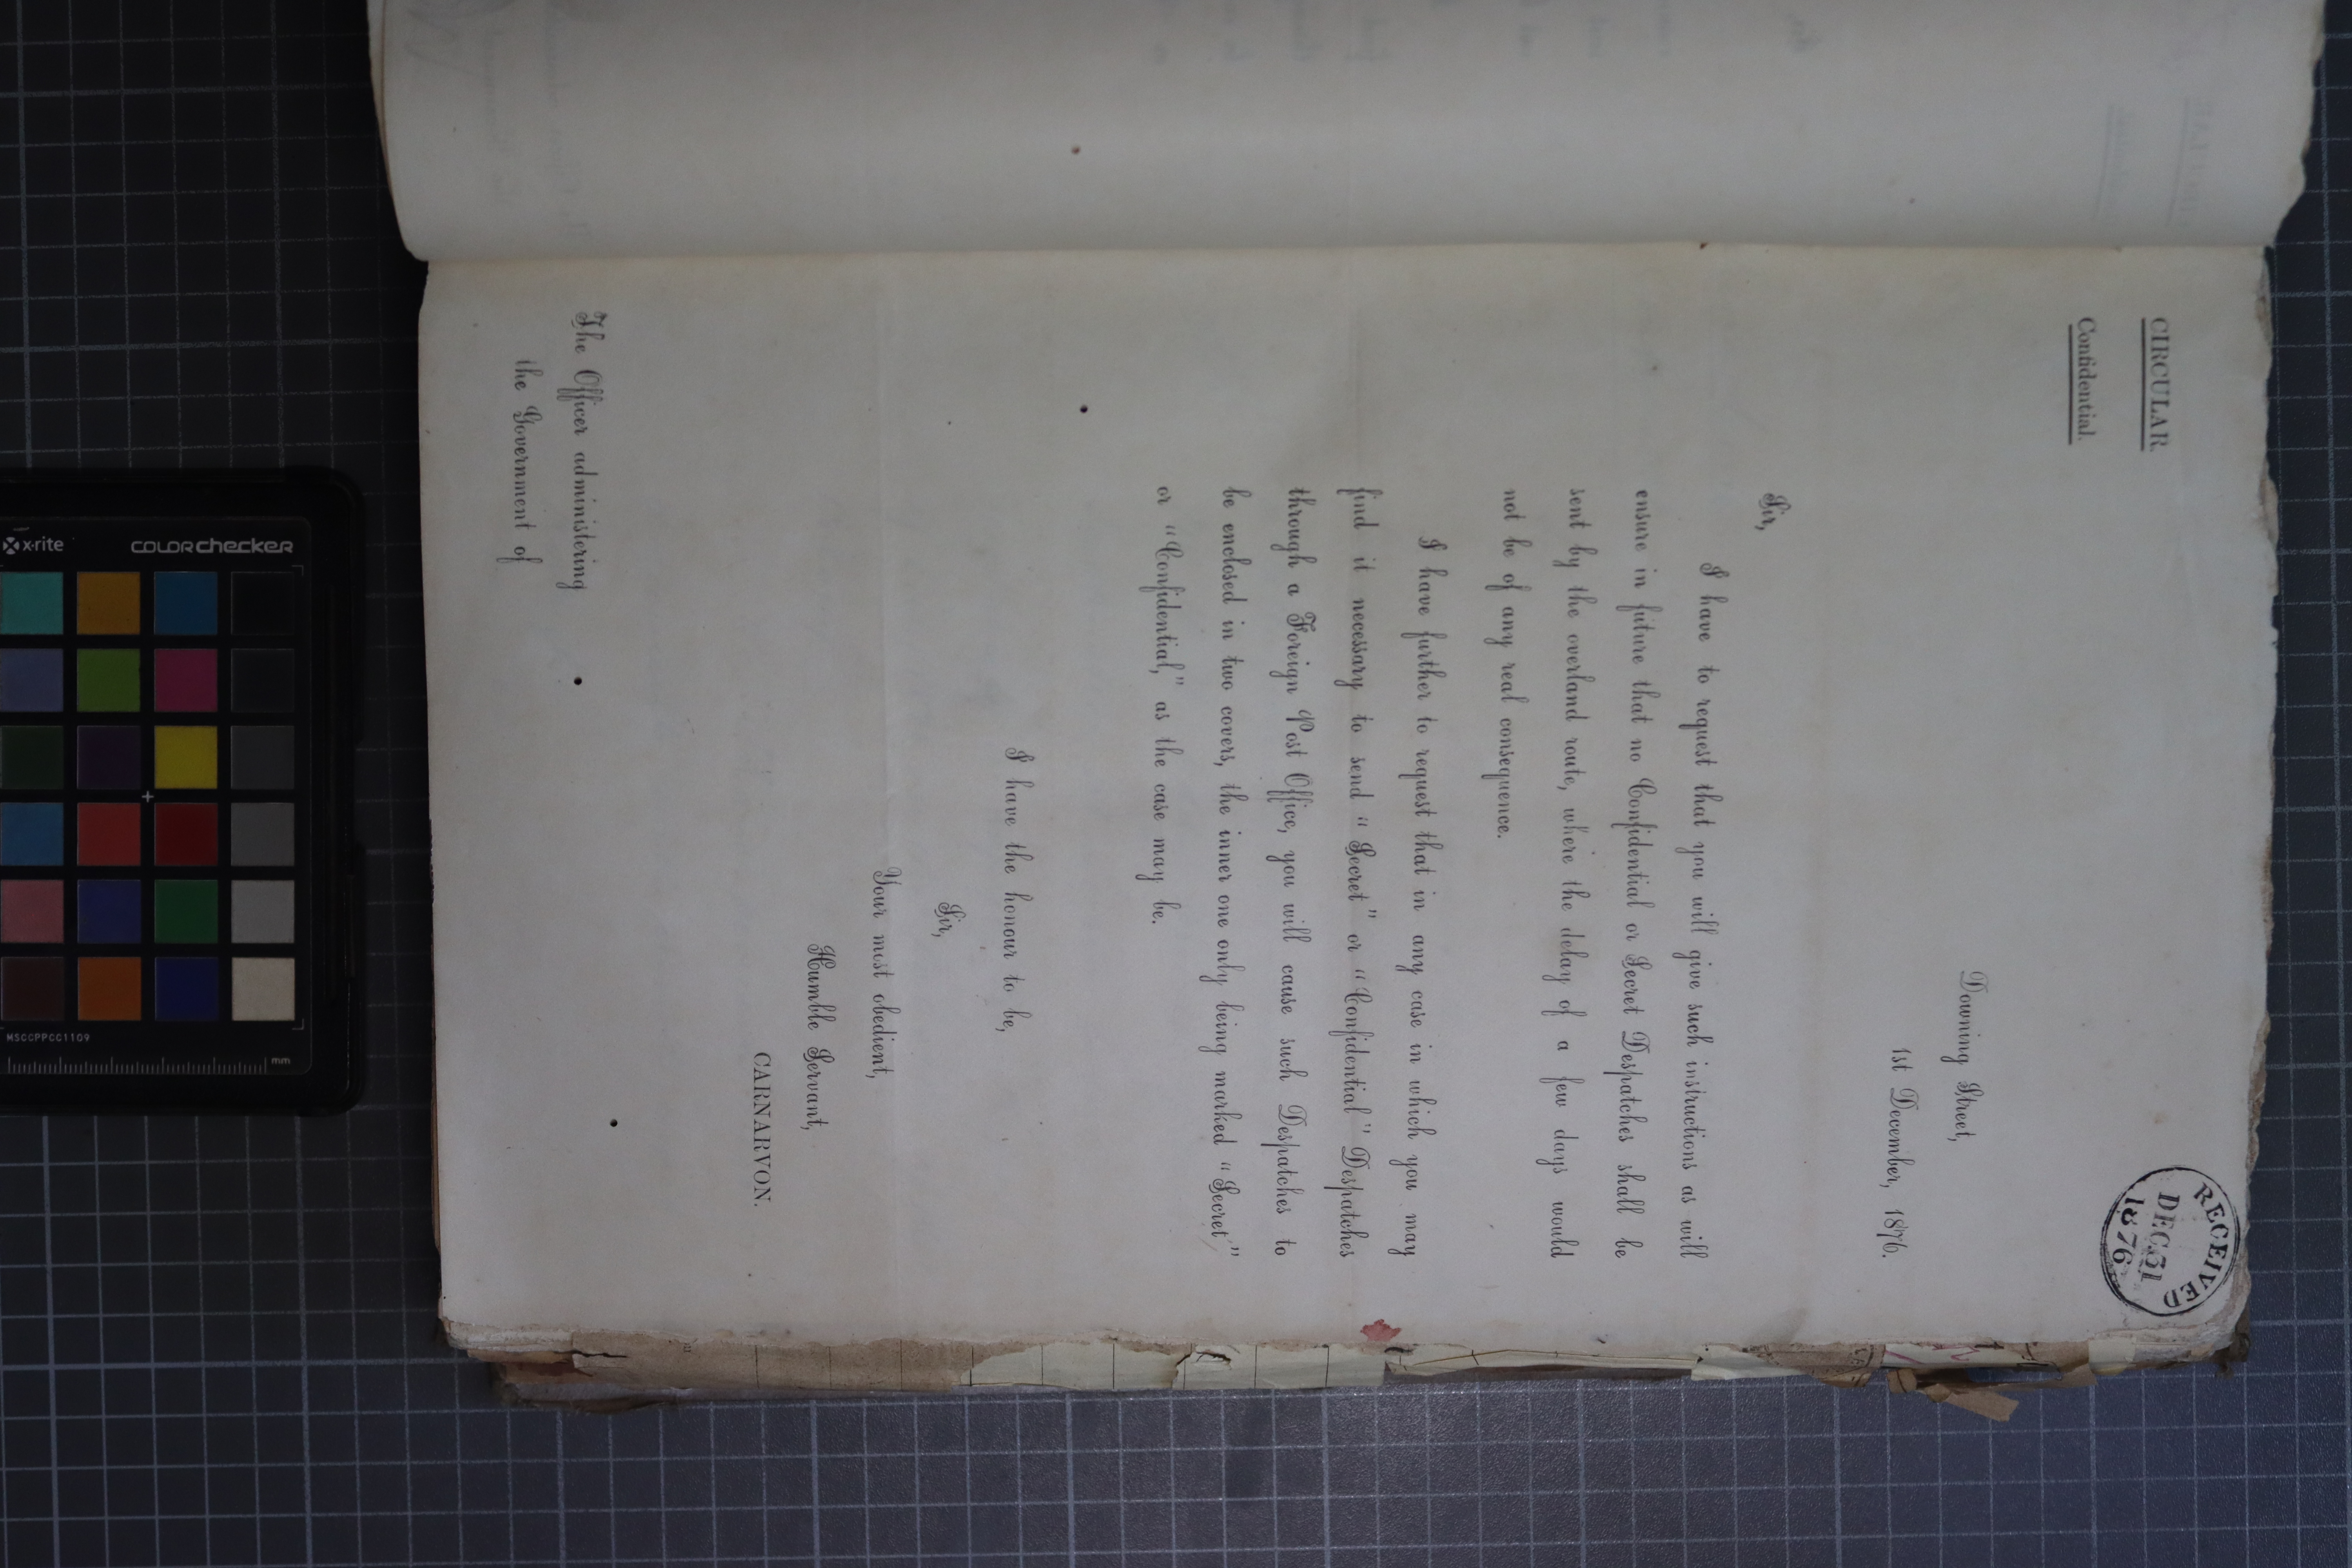 CIRCULAR.
Confidential.
RECEIVED
DEC 31
1876
Downing Street,
1st December, 1876.
Sir,
I have to request that you will give such instructions as will
ensure in future that no Confidential or Secret Despatches shall be
sent by the overland route, where the delay of a few days would
not be of any real consequence.
I have further to request that in any case in which you may
find it necessary to send "Secret" or "Confidential" Despatches
through a Foreign Post Office, you will cause such Despatches to
be enclosed in two covers, the inner one only being marked "Secret"
or "Confidential," as the case may be.
I have the honour to be,
Sir,
Your most obedient,
Humble Servant,
CARNARVON.
The Officer administering
the Government of
x-rite
colorchecker
MSCCPPCC1109
mm